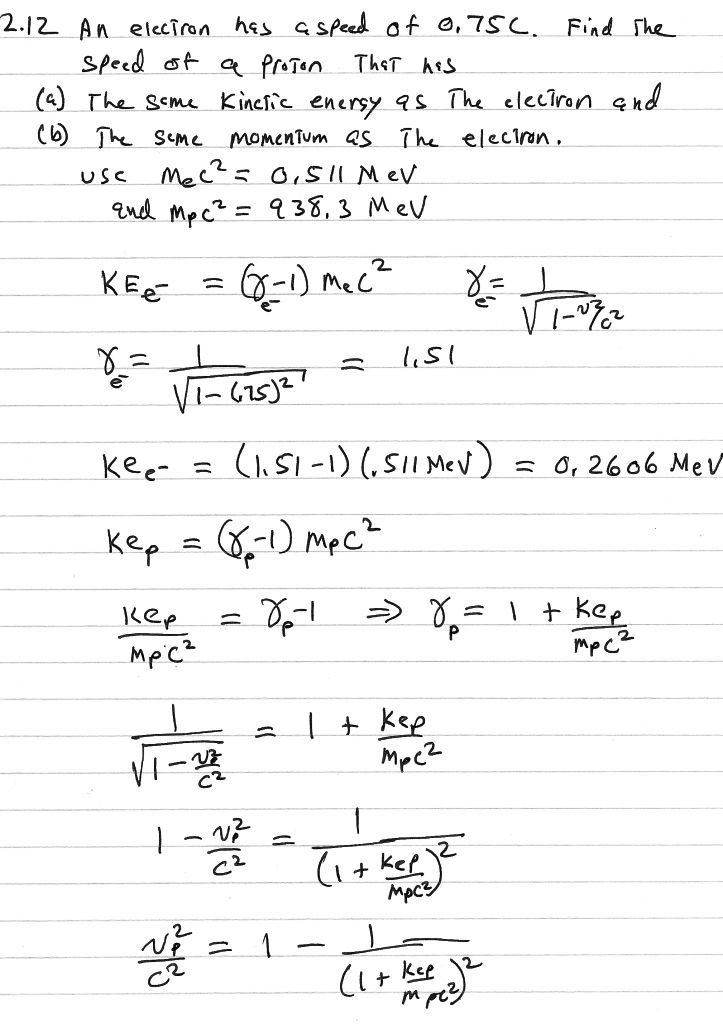 2.12 An electron has a speed of 0.75C. Find the
speed of a proton that has
(a) The same Kinetic energy as the electron and
(b) The same momentum as the electron.
use MeC² = 0.511 MeV
and Mpc² = 938.3 MeV
KEe- = (γe- -1) MeC² γe- = 1/√(1-v²/c²)
γe- = 1/√(1-(.75)²) = 1.51
Kee- = (1.51-1)(.511 MeV) = 0.2606 MeV
Kep = (γp-1) MpC²
Kep/MpC² = γp-1 ⇒ γp = 1 + Kep/MpC²
1/√(1-v²/C²) = 1 + Kep/MpC²
1 - vp²/C² = 1/(1 + Kep/MpC²)²
vp²/C² = 1 - 1/(1 + Kep/MpC²)²